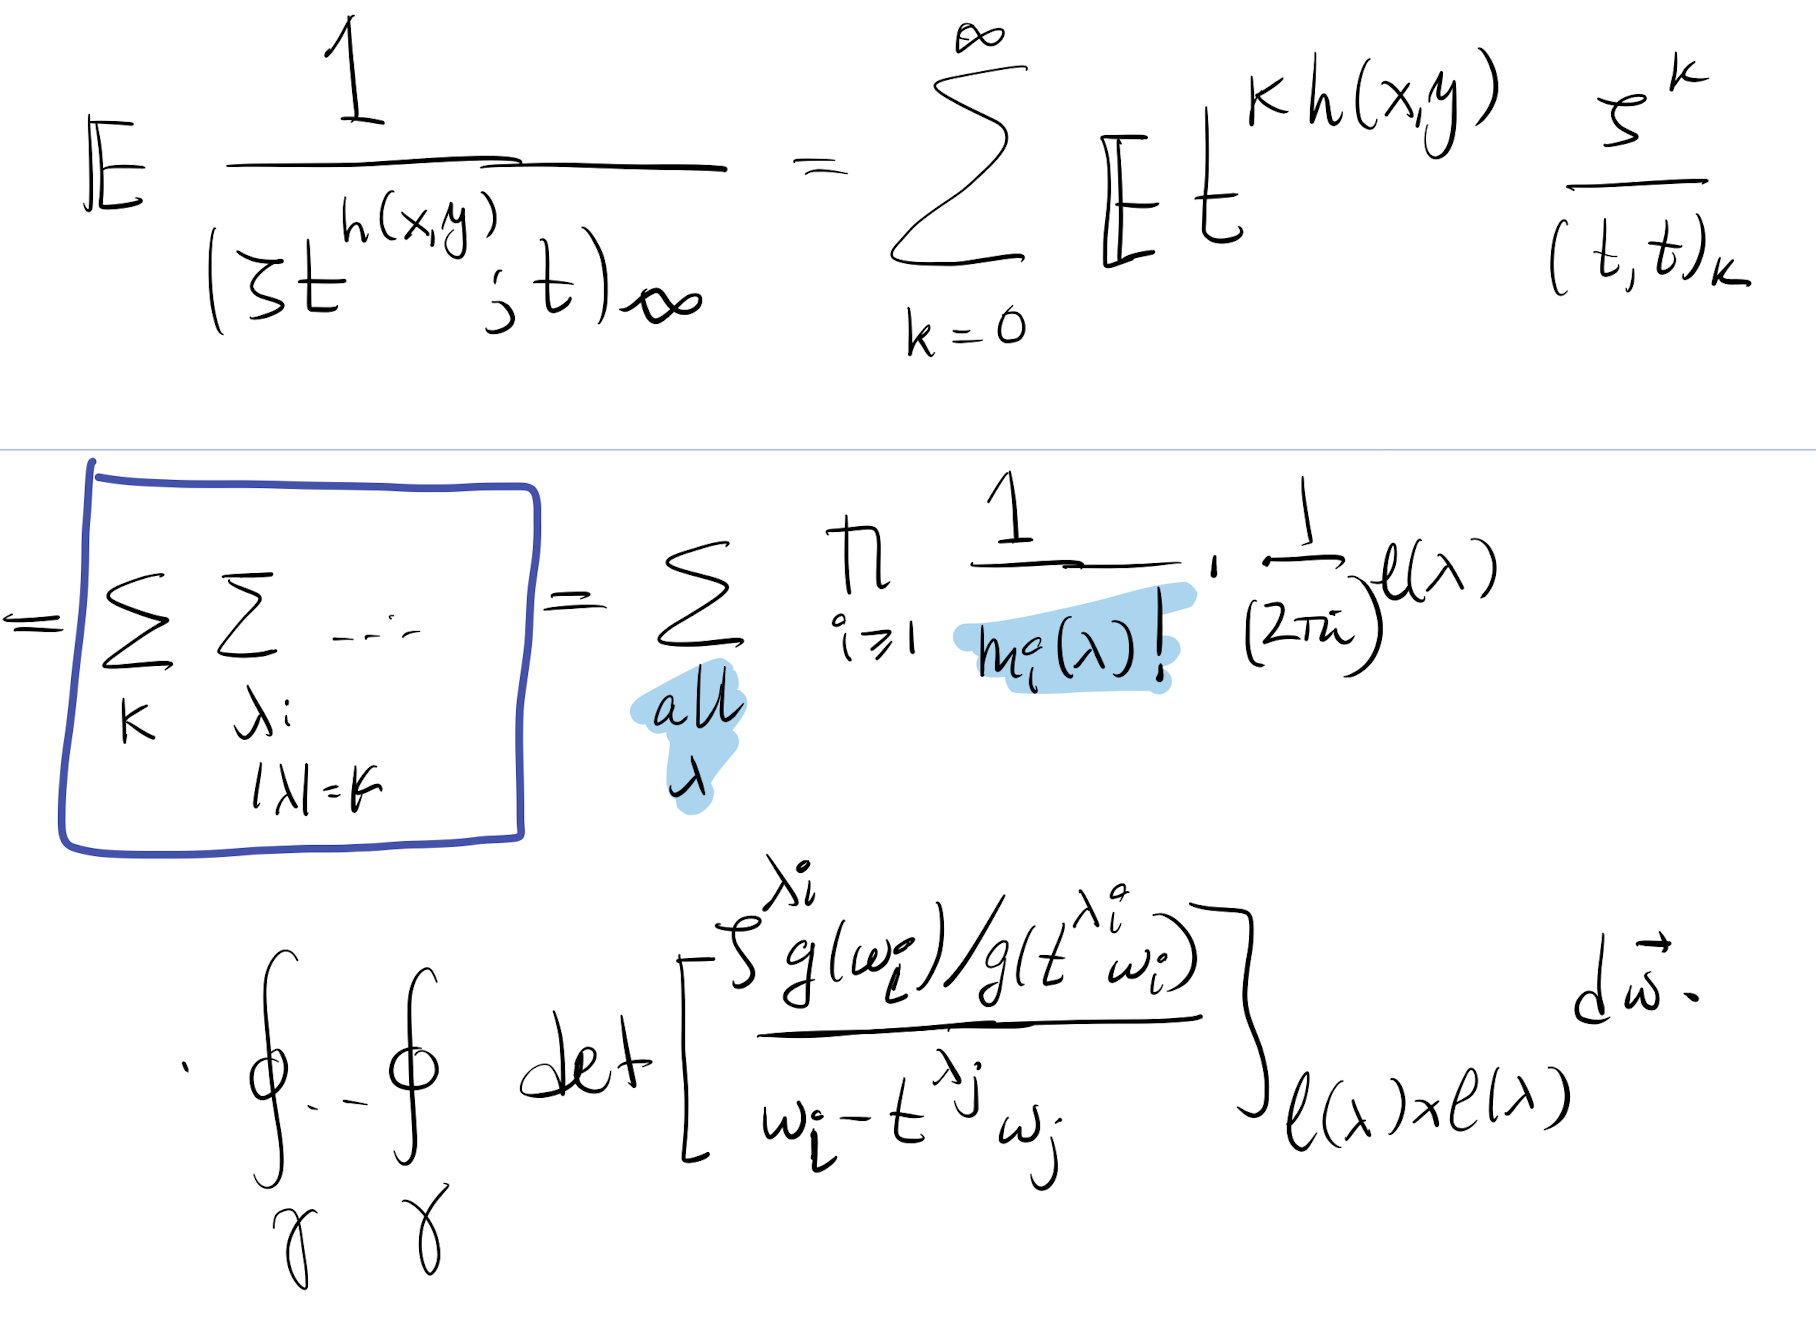 𝔼 1/(ζt^{h(x,y)}; t)_∞ = ∑_{k=0}^{∞} 𝔼 t^{k h(x,y)} ζ^k/(t,t)_k
= ∑_k ∑_{λi |λ|=k} ... = ∑_{all λ} ∏_{i⩾1} 1/m_i(λ)! · 1/(2πi)^{ℓ(λ)}
· ∮_γ ... ∮_γ det[ζ^{λ_i} g(w_i)/g(t^{λ_i} w_i) / (w_i - t^{λ_j} w_j)]_{ℓ(λ)×ℓ(λ)} d\vec{w}.